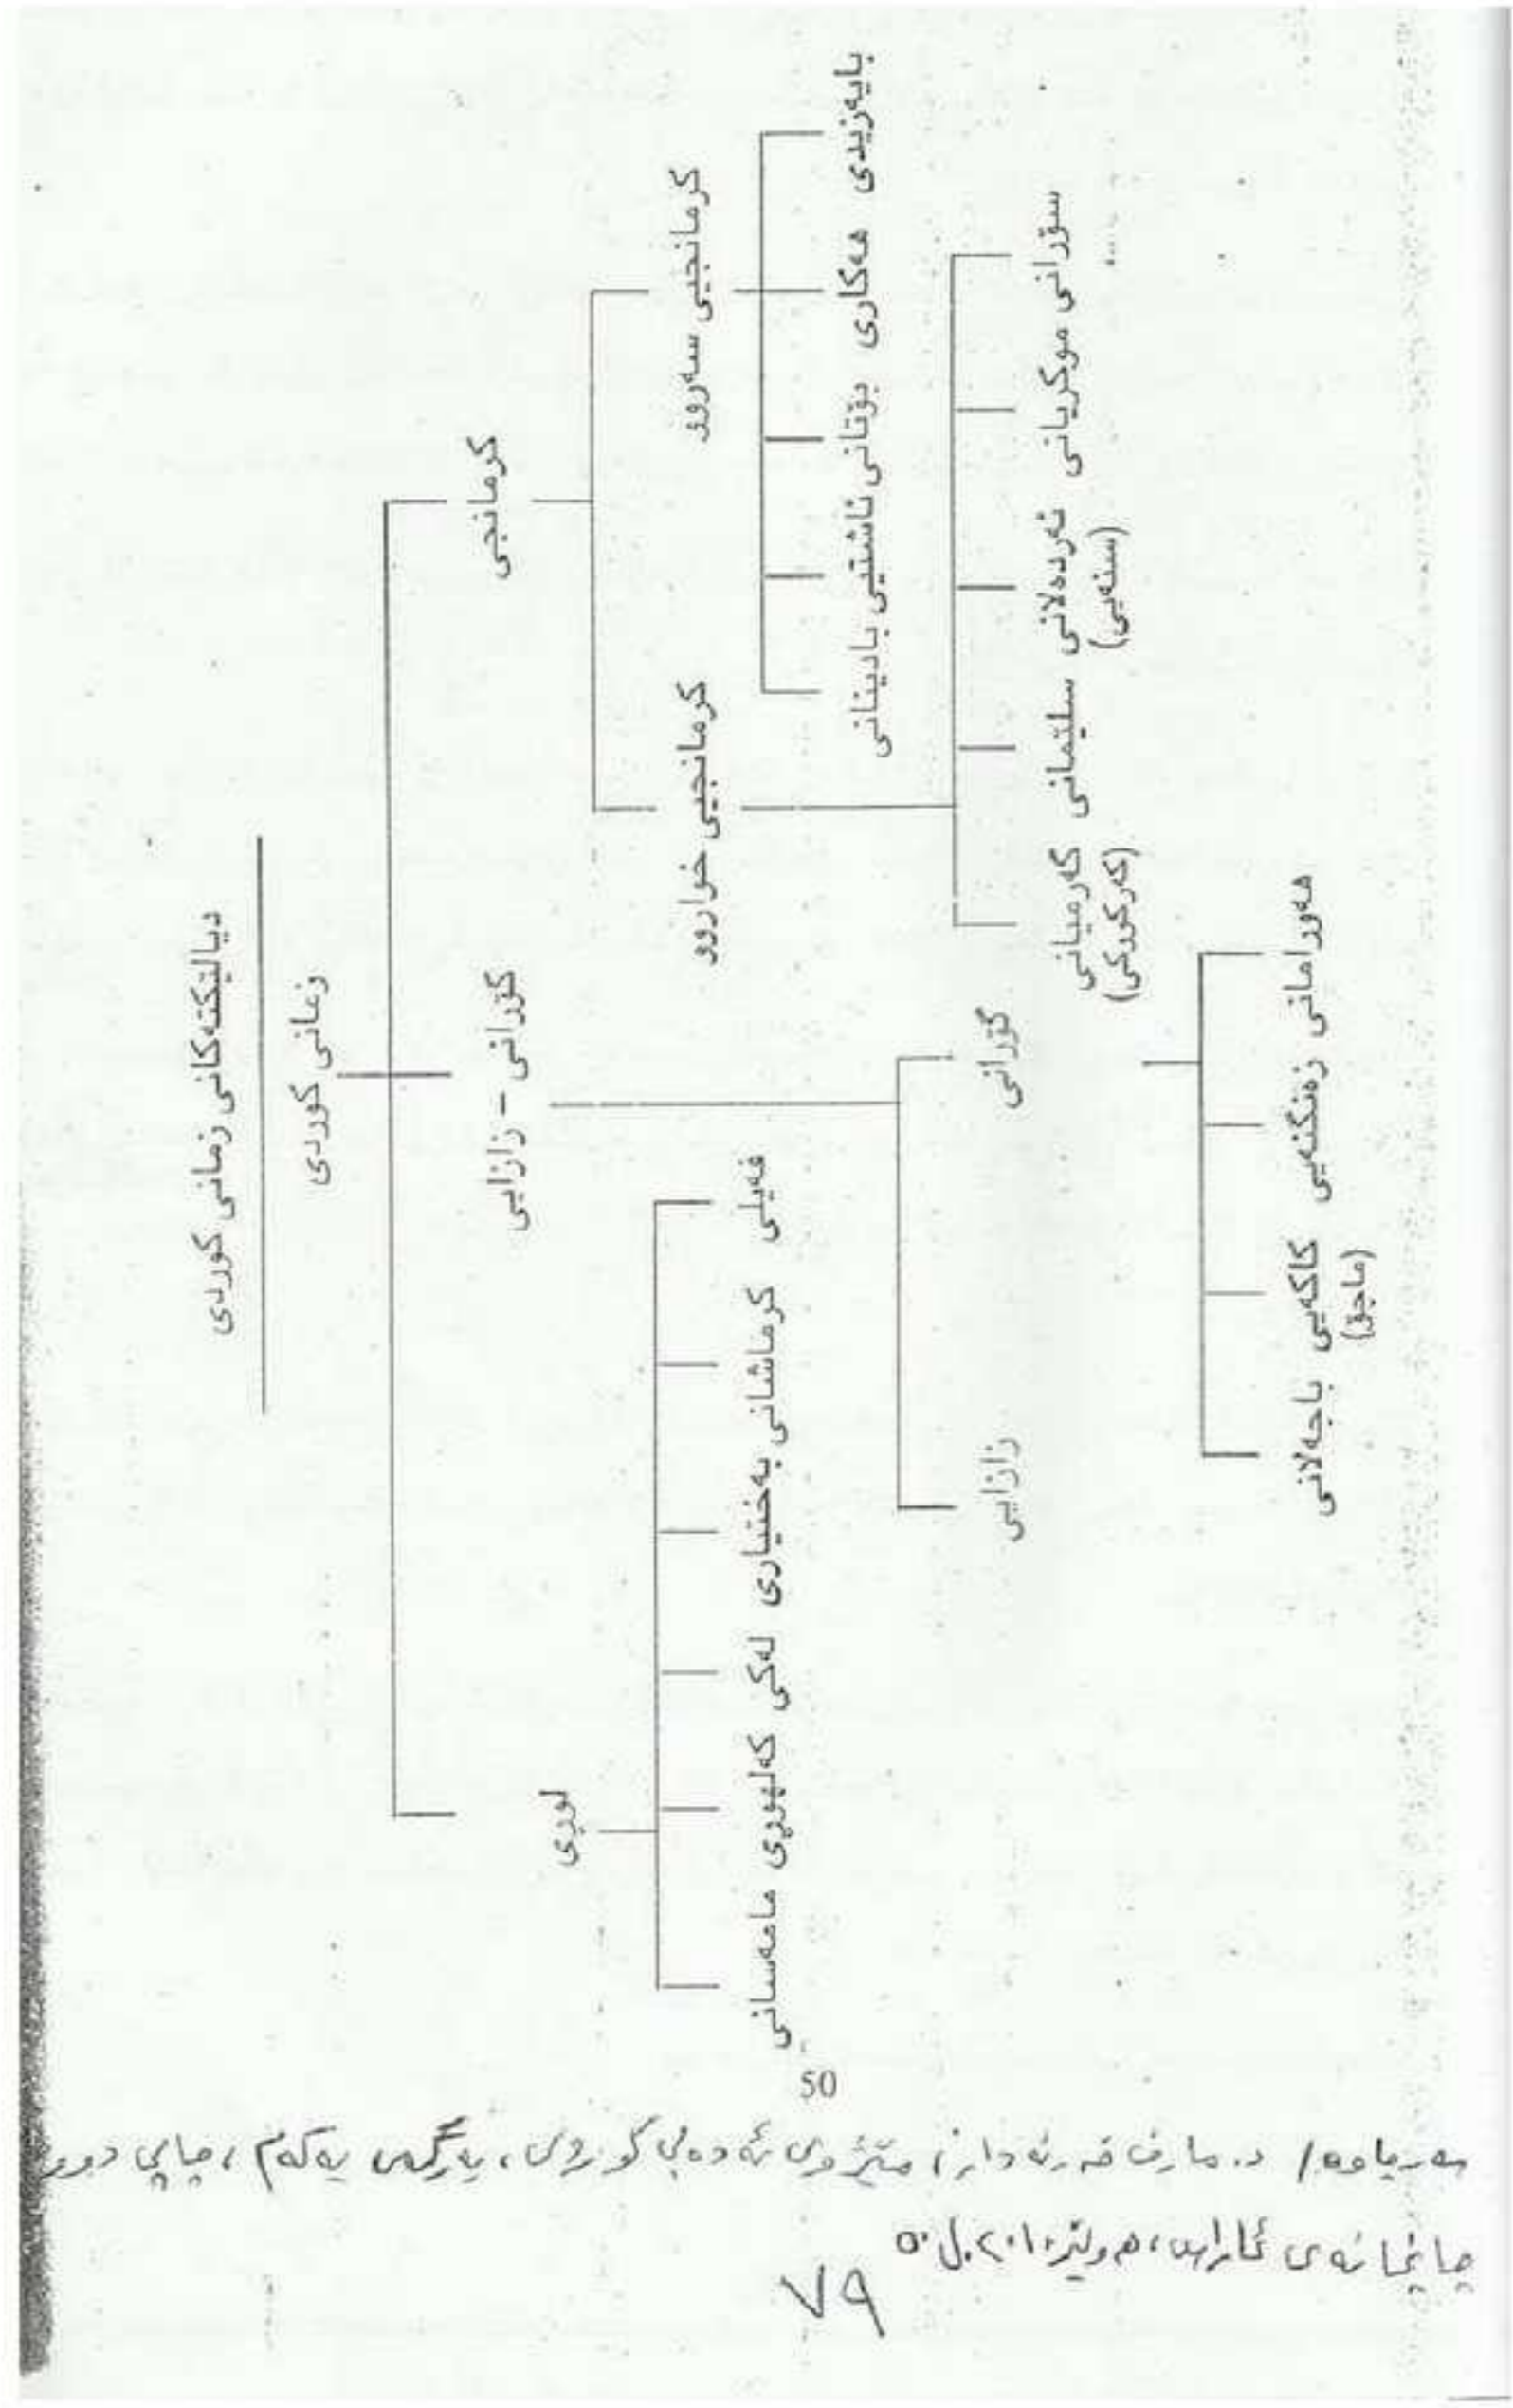 دیالێکتەکانی زمانی کوردی
زمانی کوردی
کرمانجی
گۆرانی - زازایی
لوڕی
کرمانجیی سەروو
کرمانجیی خواروو
بایەزیدی هەکاری بۆتانی ئاشتیی بادینانی
سۆرانی موکریانی ئەردەلانی سلێمانی گەرمیانی
(سنەیی)
(کەرکوکی)
گۆرانی
زازایی
هەورامانی زەنگنەیی کاکەیی باجەلانی
(ماچۆ)
فەیلی کرماشانی بەختیاری لەکی کەلهوڕی مامەسانی
50
سەرچاوە/ د. مارف خەزنەدار، مێژووی ئەدەبی کوردی، بەرگی یەکەم، چاپی دووەم
چاپخانەی ئاراس، هەولێر، ٢٠١٠، ل ٥٠
٧٩